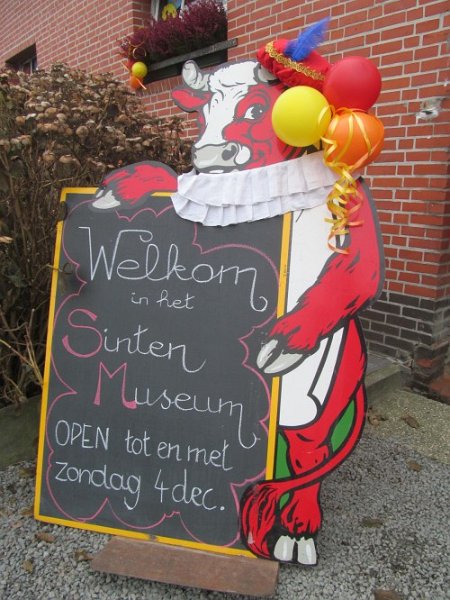 Welkom
in het
Sinten
Museum
OPEN tot en met
zondag 4 dec.